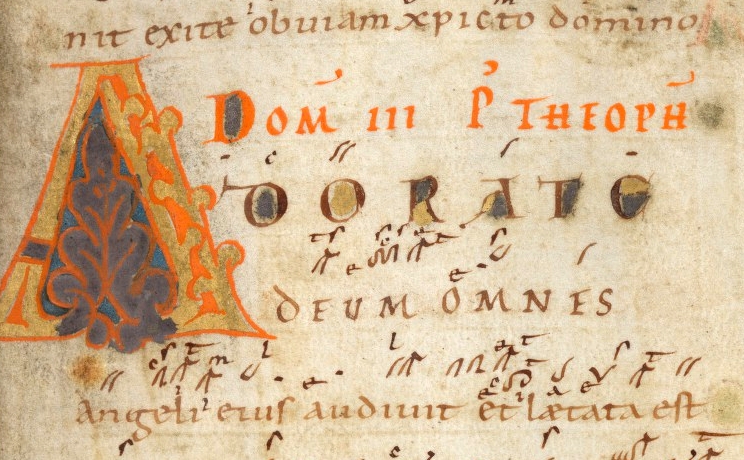 nit exite obuiam xpicto domino
DOM̄ III P̄ THEOPH̄
ADORATE
DEUM OMNES
Angeli eius audiuit et lætata est